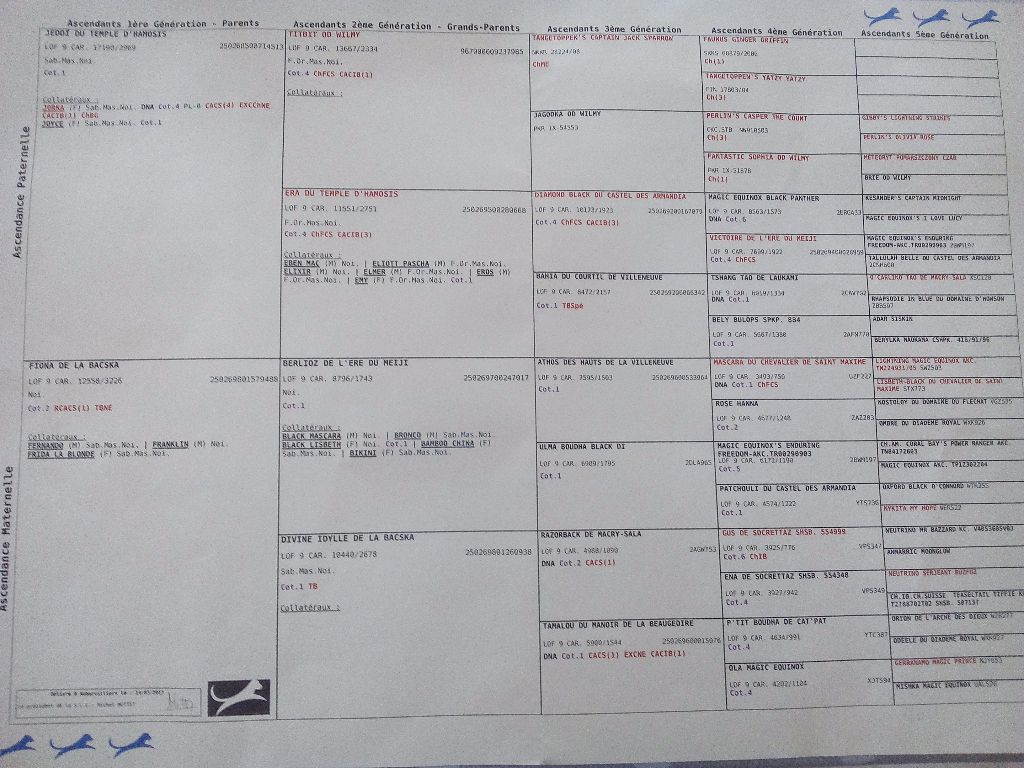 Ascendants 1ère Génération - Parents
Ascendants 2ème Génération - Grands-Parents
Ascendants 3ème Génération
Ascendants 4ème Génération
Ascendants 5ème Génération
Ascendance Paternelle
Ascendance Maternelle
JEDDI DU TEMPLE D'HAMOSIS
LOF 9 CAR. 17190/2969
250268500714513
Sab.Mas.Noi
Cot.1
Collatéraux :
JORNA (F) Sab.Mas.Noi. DNA Cot.4 PL-0 CACS(4) EXCCHNE
CACIB(1) ChBG
JOYCE (F) Sab.Mas.Noi. Cot.1
FIONA DE LA BACSKA
LOF 9 CAR. 12558/3226
250269801579488
Noi
Cot.2 RCACS(1) TBNE
Collatéraux :
FERNANDO (M) Sab.Mas.Noi. | FRANKLIN (M) Noi.
FRIDA LA BLONDE (F) Sab.Mas.Noi.
TITBIT OD WILMY
LOF 9 CAR. 13667/2334
967000009237985
F.Or.Mas.Noi.
Cot.4 ChFCS CACIB(1)
Collatéraux :
ERA DU TEMPLE D'HAMOSIS
LOF 9 CAR. 11551/2751
250269500280668
F.Or.Mas.Noi.
Cot.4 ChFCS CACIB(3)
Collatéraux :
EBEN MAC (M) Noi. | ELIOTT PASCHA (M) F.Or.Mas.Noi.
ELIXIR (M) Noi. | ELMER (M) F.Or.Mas.Noi. | EROS (M)
F.Or.Mas.Noi. | EMY (F) F.Or.Mas.Noi. Cot.1
BERLIOZ DE L'ERE DU MEIJI
LOF 9 CAR. 8796/1743
250269700247017
Noi.
Cot.1
Collatéraux :
BLACK MASCARA (M) Noi. | BRONCO (M) Sab.Mas.Noi.
BLACK LISBETH (F) Noi. Cot.1 | BAMBOO CHINA (F)
Sab.Mas.Noi. | BIKINI (F) Sab.Mas.Noi.
DIVINE IDYLLE DE LA BACSKA
LOF 9 CAR. 10440/2678
250269801260938
Sab.Mas.Noi.
Cot.1 TB
Collatéraux :
TANGETOPPEN'S CAPTAIN JACK SPARROW
NKKR 28224/08
ChMC
JAGODKA OD WILMY
PKR IX-54353
DIAMOND BLACK DU CASTEL DES ARMANDIA
LOF 9 CAR. 10173/1923
250269200167079
Cot.4 ChFCS CACIB(3)
BAHIA DU COURTIL DE VILLENEUVE
LOF 9 CAR. 8472/2157
250269206066342
Cot.1 TBSpé
ATHOS DES HAUTS DE LA VILLENEUVE
LOF 9 CAR. 7595/1503
250269600533964
Cot.1
ULMA BOUDHA BLACK DI
LOF 9 CAR. 6909/1795
2DLA965
Cot.1
RAZORBACK DE MACRY-SALA
LOF 9 CAR. 4988/1090
2AGW753
DNA Cot.2 CACS(1)
TAMALOU DU MANOIR DE LA BEAUGEOIRE
LOF 9 CAR. 5900/1544
250269600015076
DNA Cot.1 CACS(1) EXCNE CACIB(1)
TAURUS GINGER GRIFFIN
Ch(1)
TANGETOPPEN'S YATZY YATZY
FIN 17803/04
Ch(3)
PERLIN'S CASPER THE COUNT
CKC.STB. NN910503
Ch(3)
FANTASTIC SOPHIA OD WILMY
PKR IX-51878
Ch(1)
MAGIC EQUINOX BLACK PANTHER
LOF 9 CAR. 8563/1573
2ERGA33
DNA Cot.6
VICTOIRE DE L'ERE DU MEIJI
LOF 9 CAR. 7609/1922
250269400028959
Cot.4 ChFCS
TSHANG TAO DE LAUKAMI
LOF 9 CAR. 6959/1334
2CAV752
DNA Cot.1
BELY BULOPS SPKP. 884
LOF 9 CAR. 5667/1380
2AFN770
Cot.1
MASCARA DU CHEVALIER DE SAINT MAXIME
LOF 9 CAR. 3493/756
UZF227
DNA Cot.1 ChFCS
ROSE HANNA
LOF 9 CAR. 4677/1248
ZAZ203
Cot.2
MAGIC EQUINOX'S ENDURING
FREEDOM-AKC.TR00290903
LOF 9 CAR. 6172/1190
2BWM197
Cot.5
PATCHOULI DU CASTEL DES ARMANDIA
LOF 9 CAR. 4574/1222
YTS736
Cot.1
GUS DE SOCRETTAZ SHSB. 554999
LOF 9 CAR. 3925/776
VPS347
Cot.6 ChIB
ENA DE SOCRETTAZ SHSB. 554348
LOF 9 CAR. 3927/942
VPS349
Cot.4
P'TIT BOUDHA DE CAT'PAT
LOF 9 CAR. 4634/991
YTC387
Cot.4
OLA MAGIC EQUINOX
LOF 9 CAR. 4202/1104
XJT594
Cot.4
GIBBY'S LIGHTNING STRIKES
PERLIN'S OLIVIA ROSE
METEORYT POMARSZCZONY CZAR
BRIE OD WILMY
KESANDER'S CAPTAIN MIDNIGHT
MAGIC EQUINOX'S I LOVE LUCY
MAGIC EQUINOX'S ENDURING
FREEDOM-AKC.TR00290903 2BWM197
TALLULAH BELLE DU CASTEL DES ARMANDIA
O'CARLIKO TAO DE MACRY-SALA
RHAPSODIE IN BLUE DU DOMAINE D'HOWSON
ADAR SISKIN
BERYLKA NAUKAMA CSHPK. 418/91/96
LIGHTNING MAGIC EQUINOX AKC.
TN224931/05 SWZ503
LISBETH-BLACK DU CHEVALIER DE SAINT
MAXIME STX773
KOSTOLOY DU DOMAINE DU FLECHAT
OMBRE DU DIADEME ROYAL WXK926
CH.AM. CORAL BAY'S POWER RANGER AKC.
TN84172603
MAGIC EQUINOX AKC. TP12302204
OXFORD BLACK O'CONNORD
NYKITA MY HOPE WER522
NEUTRINO MR BAZZARD KC.
ANNARRIC MOONGLOW
NEUTRINO SERJEANT BUZFUZ
CH.IB.CH.SUISSE. TEASELTAIL TIFFIE
ORION DE L'ARCHE DES DIEUX
ODEELE DU DIADEME ROYAL
GERRANAMO MAGIC PRINCE
MISHKA MAGIC EQUINOX